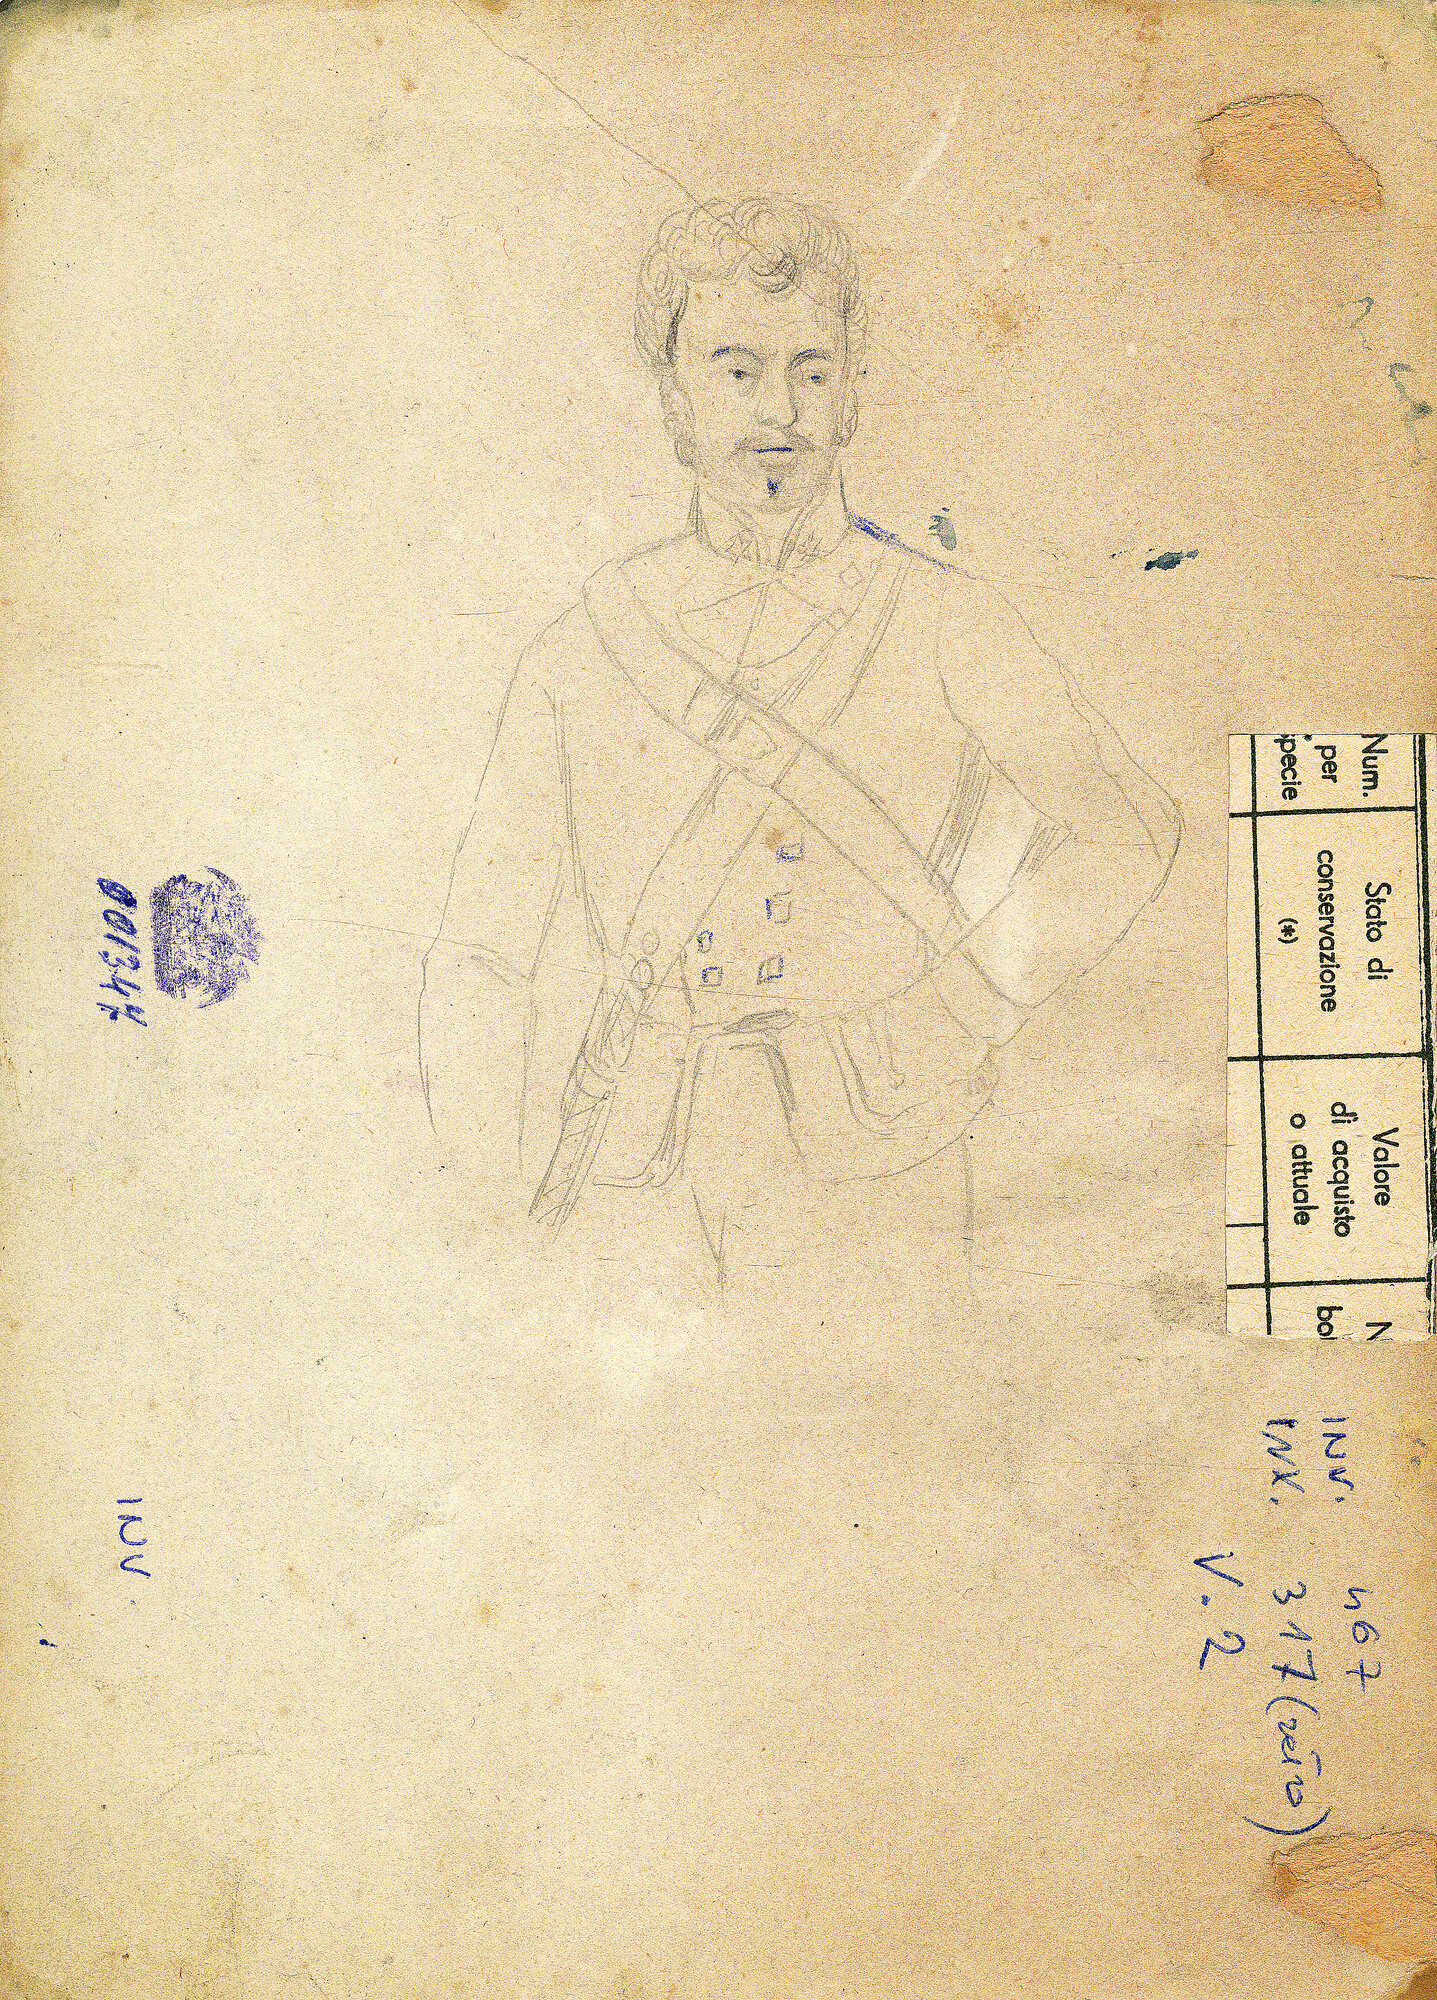 Num.
per
specie
Stato di
conservazione
(*)
Valore
di acquisto
o attuale
N
bol
INV. 467
INV. 317 (retro)
V. 2
001347
INV.